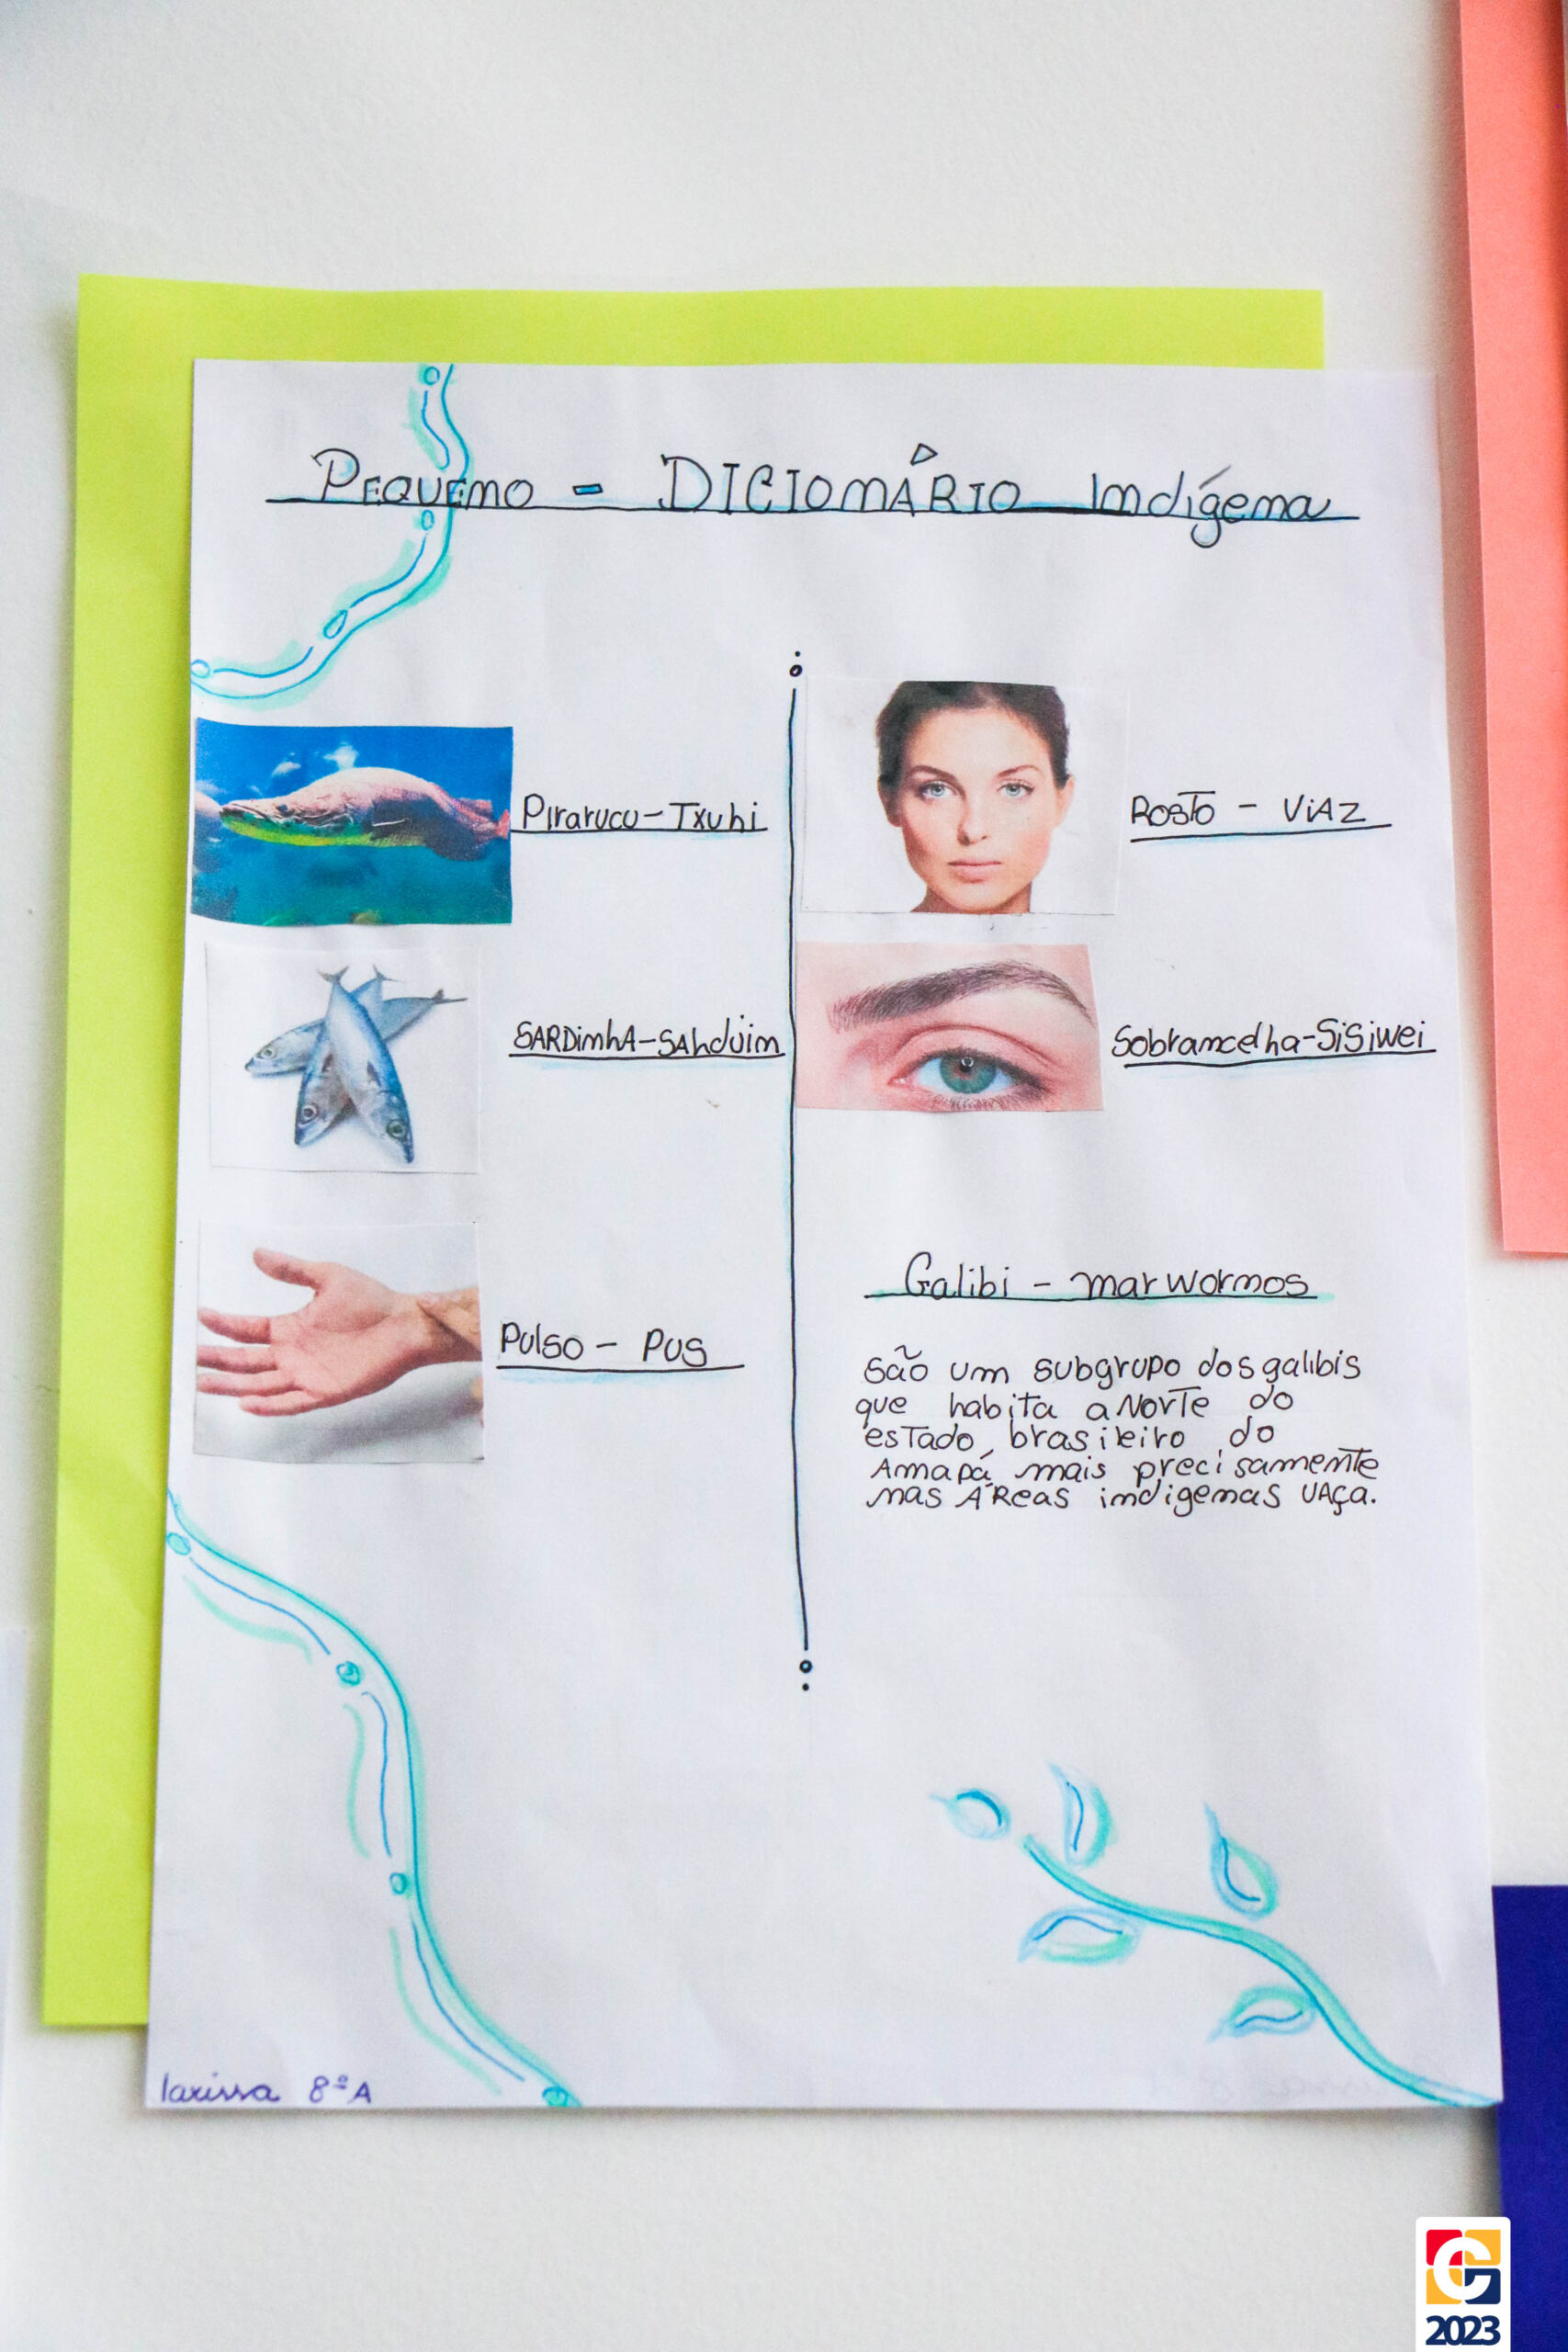 PEQUENO - DICIONÁRIO Indígena
Pirarucu - Txuhi
SARDinhA - SAhduim
Pulso - PUS
ROSTO - ViAZ
Sobrancelha - SiSiwei
Galibi - marwornos
São um subgrupo dos galibis
que habita a NORTE do
esTado, brasileiro do
Amapá, mais precisamente
nas ÁReas indigenas UAça.
larissa 8ºA
2023